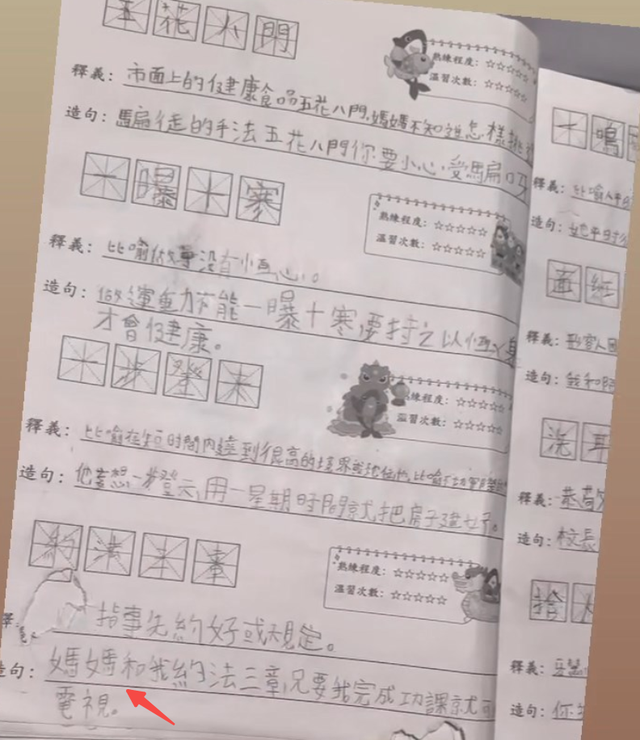 五花八門
熟練程度：☆☆☆☆☆
溫習次數：☆☆☆☆☆
釋義：市面上的健康食品五花八門,媽媽不知道怎樣挑
造句：騙徒的手法五花八門你要小心,受騙
一曝十寒
熟練程度：☆☆☆☆☆
溫習次數：☆☆☆☆☆
釋義：比喻做事沒有恒心。
造句：做運動不能一曝十寒,要持之以恆,身
才會健康。
一步登天
熟練程度：☆☆☆☆☆
溫習次數：☆☆☆☆☆
釋義：比喻在短時間內達到很高的境界或地位
造句：他妄想一步登天,用一星期時間就把房子建好。
約法三章
熟練程度：☆☆☆☆☆
溫習次數：☆☆☆☆☆
指事先約好或規定。
造句：媽媽和我約法三章,只要我完成功課就可
電視。
一鳴
釋義：比喻
造句：
面紅
釋義：形容人
造句：我和
洗耳
釋義：恭敬
造句：校長
拾人
釋義：
造句：你